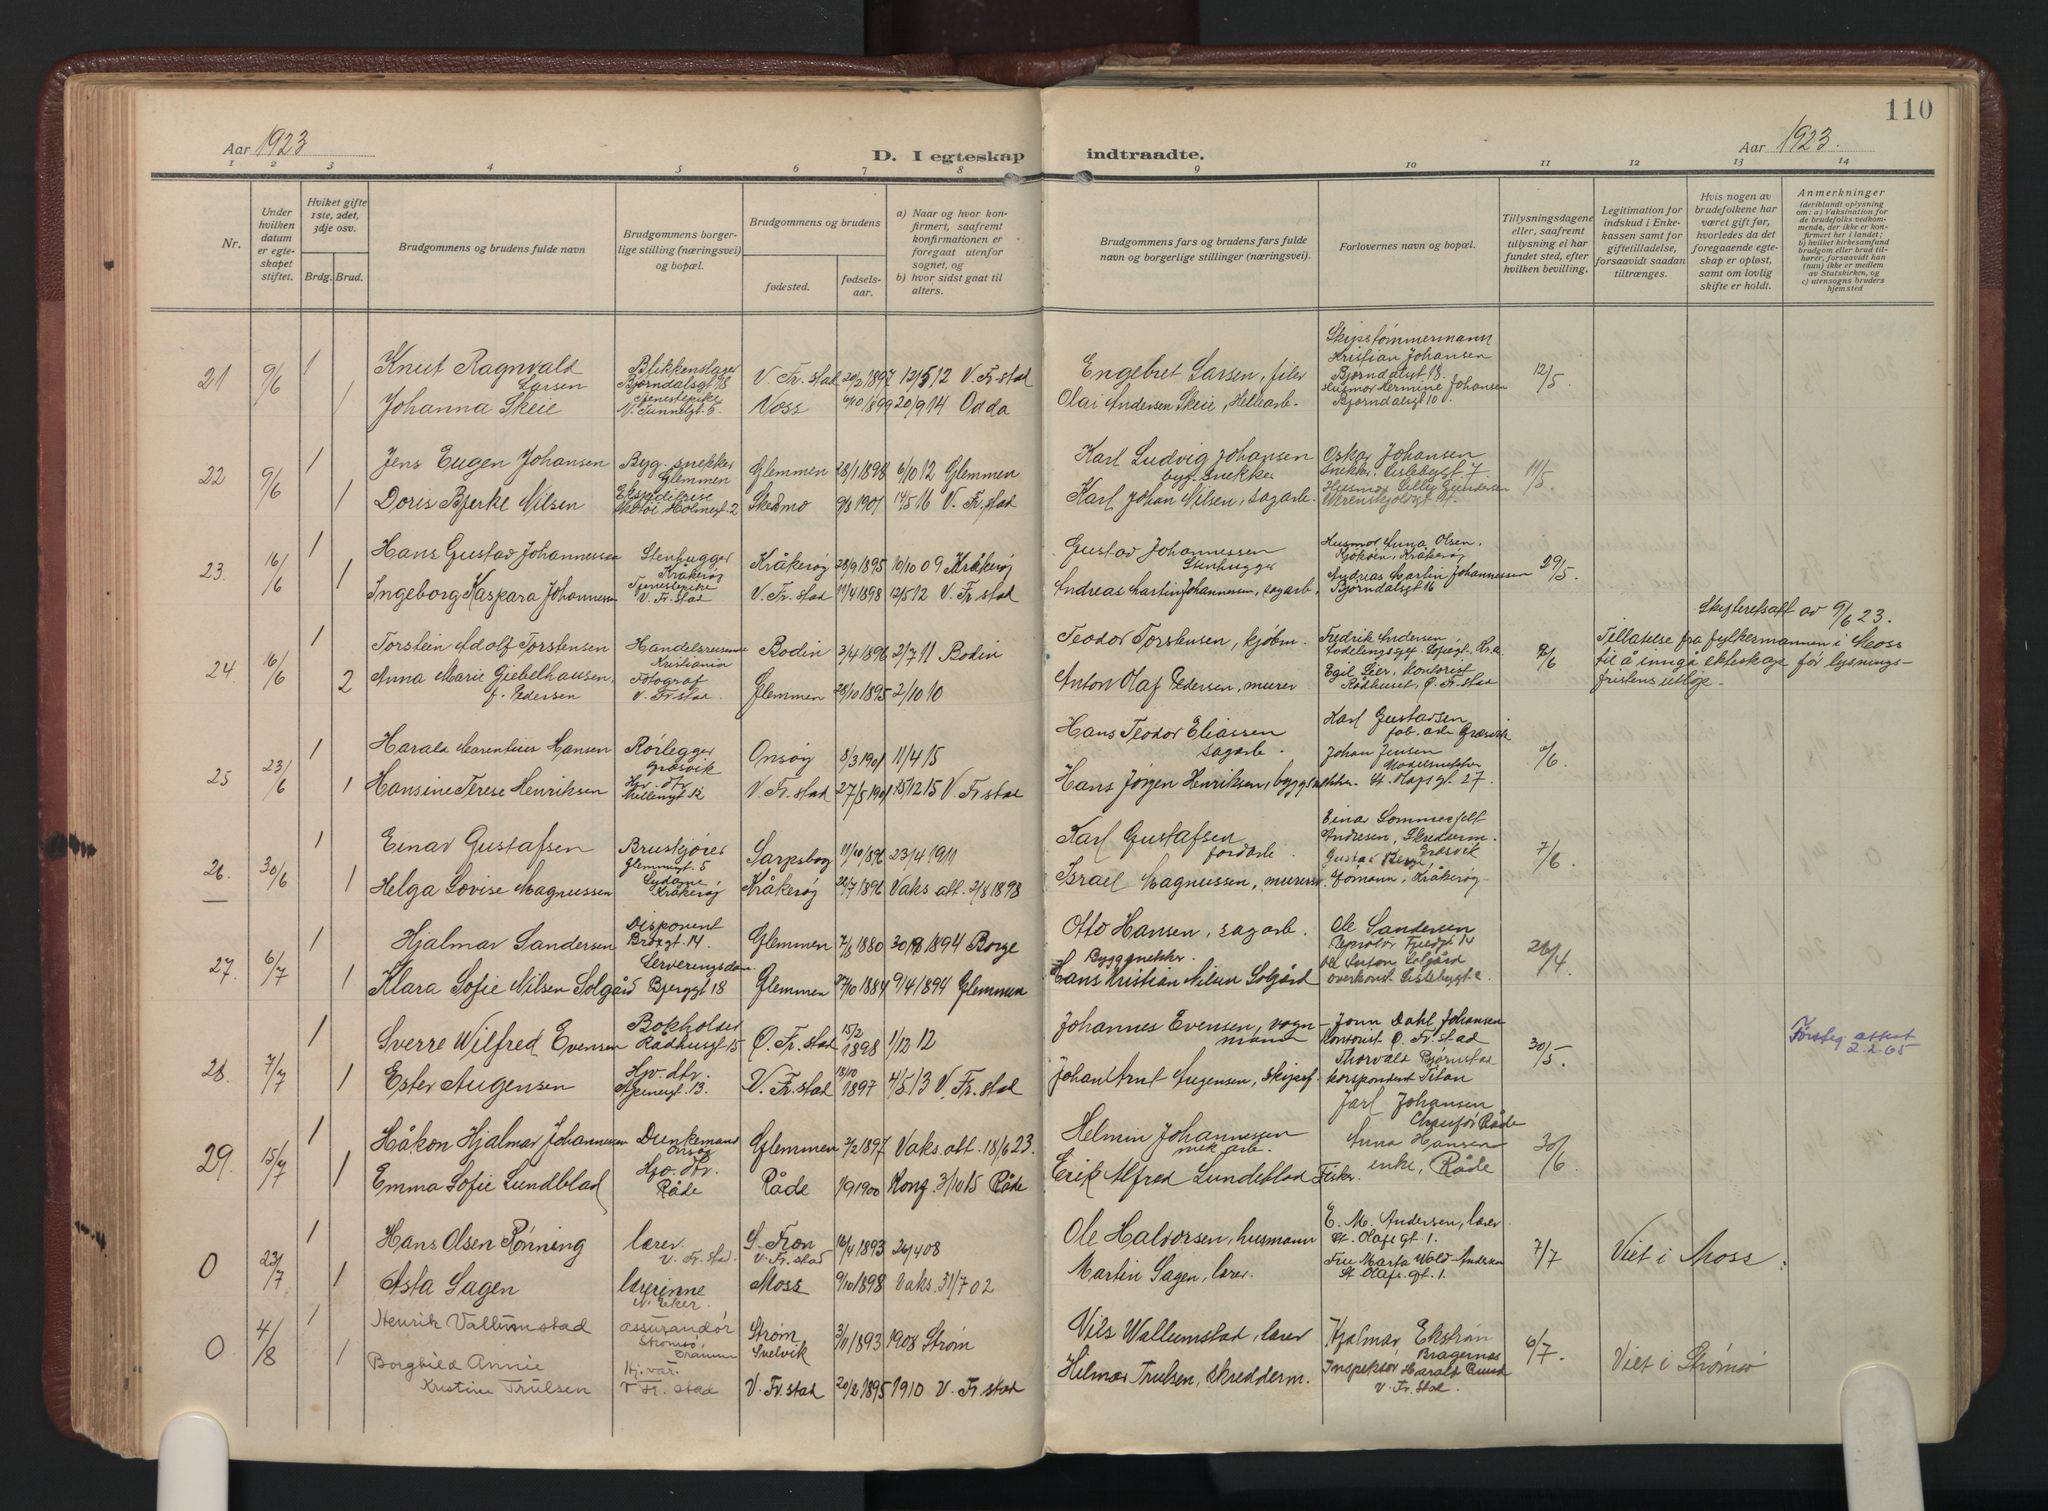 110
Aar 1923
D. I egteskap indtraadte.
Aar 1923.
1 2 3 4 5 6 7 8 9 10 11 12 13 14
Nr.
Under hvilken datum er egteskapet stiftet.
Hviket gifte 1ste, 2det, 3dje osv.
Brdg. Brud.
Brudgommens og brudens fulde navn
Brudgommens borgerlige stilling (næringsvei) og bopæl.
Brudgommens og brudens
fødested.
fødselsaar.
a) Naar og hvor konfirmert, saafremt konfirmationen er foregaat utenfor sognet, og
b) hvor sidst gaat til alters.
Brudgommens fars og brudens fars fulde navn og borgerlige stillinger (næringsvei).
Forlovernes navn og bopæl.
Tillysningsdagene eller, saafremt tillysning ei har fundet sted, efter hvilken bevilling.
Legitimation for indskud i Enkekassen samt for giftetilladelse, forsaavidt saadan tiltrænges.
Hvis nogen av brudefolkene har været gift før, hvorledes da det foregaaende egteskap er opløst, samt om lovlig skifte er holdt.
Anmerkninger
(deriblandt oplysning om: a) Vaksination for de brudefolks vedkommende, der ikke er konfirmert her i landet; b) hvilket kirkesamfund brudgom eller brud tilhører, forsaavidt han (hun) ikke er medlem av Statskirken, og c) utensogns bruders hjemsted
21 9/6 1 Knut Ragnvald Larsen Blikkenslager Bjørndalsgt 18 V. Fr.stad 20/2 1897 12/5 12 V. Fr.stad Engebret Larsen, filer Skipstømmermann Kristian Johansen Bjørndalsgt 18. 12/5.
1 Johanna Skeie Tjenestepike V. Tunnelgt 6 Voss 6/10 1899 20/9 14 Odda Olai Andersen Skeie, Husmor Hermine Johansen Bjørndalsgt 10
22 9/6 1 Jens Eugen Johansen Byg.snekker Glemmen Glemmen 28/1 1898 6/10 12 Glemmen Karl Ludvig Johansen byg.snekker Oskar Johansen Snekker. Lislebygt 7 11/5
1 Doris Bjerke Nilsen Holmegt. 2 Skedsmo 9/3 1901 14/5 16 V. Fr.stad Karl Johan Nilsen, sagarb. Husmor Lilly Gundersen
23. 16/6 1 Hans Gustav Johannessen Stenhugger Kråkerøy Kråkerøy 28/9 1895 10/10 09 Kråkerøy Gustav Johannessen Stenhugger Husmor Anna Olsen, Kjøkøen, Kråkerøy 29/5.
1 Ingeborg Kaspara Johannessen Tjenestepike V. Fr.stad V. Fr.stad 11/4 1898 12/5 12 V. Fr.stad Andreas Martin Johannessen, sagarb. Andreas Martin Johannessen Bjørndalsgt 16
24 16/6 1 Torstein Adolf Torstensen Handelsreisende Kristiania Bodin 3/4 1896 2/7 11 Bodin Teodor Torstensen, kjøbm. Fredrik Andersen
2 Anna Marie Giebelhausen, f. Pedersen Fotograf V. Fr.stad Glemmen 28/10 1895 2/10 10 Anton Olaf Pedersen, murer Egil Lier, kontorist Rådhuset, Ø. Fr.stad
Skifteretsatt av 9/6 23.
Tillatelse fra fylkesmannen i Moss
til å inngå ekteskap før lysnings-
fristens utløp.
25 23/6 1 Harald Marentius Hansen Rørlegger Græsvik Onsøy 8/3 1901 11/4 15 Hans Teodor Eliassen sagarb. Karl Gustavsen fab.arb. Græsvik
1 Hansine Terese Henriksen Hjv. dtr. Møllergt 12 V. Fr.stad 27/5 1901 5/12 15 V. Fr.stad Hans Jørgen Henriksen, Johan Jensen Modelsnekker St. Olafsgt. 27.
26. 30/6 1 Einar Gustafsen Bruskjører Glemmigt. 5 Sarpsborg 11/10 1896 23/4 1911 Karl Gustafsen jordarb. Einar Sommerfelt Andresen, Skredderm. Græsvik 7/6.
1 Helga Lovise Magnussen Sydame, Kråkerøy Kråkerøy 22/7 1896 Vaks att. 2/8 1898 Israel Magnussen, murer Gustav Berge, Kråkerøy
27. 6/7 1 Hjalmar Sandersen Disponent Brogt. 14. Glemmen 7/3 1880 30/9 1894 Borge Otto Hansen, sagarb. Ole Sandersen 26/4.
1 Klara Sofie Nilsen Solgård Serveringsdame Bjergt 18 Glemmen 27/10 1884 9/4 1894 Glemmen Byggsnekker. Hans Kristian Nilsen Solgård Anton Solgård overkonst. Lislebygt 2
28. 7/7 1 Sverre Wilfred Evensen Bokholder Rådhusgt 15 Ø. Fr.stad 15/2 1898 1/12 12 Johannes Evensen, vognmand John Dahl Johansen Kontorist Ø. Fr.stad 30/5.
1 Ester Augensen Hjv. dtr. V. Fr.stad 13/10 1897 4/5 13 V. Fr.stad Johan Arnt Augensen, skipsf. Thorvald Bjørnstad korspondent Titan
attest
2.2.65
29. 15/7 1 Håkon Hjalmar Johannessen Dunkemand Onsøy Glemmen 2/2 1897 Vaks. att. 18/6 23. Helmin Johannessen mek arb. Jarl Johansen Chaufør Råde 30/6.
1 Emma Sofie Lundblad Hjv. dtr. Råde Råde 1/9 1900 Konf. 3/10 15 Råde Erik Alfred Lundeblad Fisker. Anna Hansen enke, Råde
0 23/7 1 Hans Olsen Rønning lærer V. Fr.stad. S. Fron V. Fr.stad 16/4 1893 26/4 08 Ole Halvorsen, husmann E. M. Andersen, lærer St. Olafsgt. 1. 7/7 Viet i Moss.
1 Asta Sagen lærerinne N. Eker. Moss 9/10 1898 Vaks. 31/7 02 Martin Sagen, lærer. Fru Marta Wold-Andersen St Olafsgt. 1.
0 4/8 1 Henrik Vallumstad assurandør Strømsø, Drammen Strøm Svelvik 3/11 1893 1908 Strøm Nils Wallumstad, lærer Hjalmar Ekstrøm Bragernes 6/7. Viet i Strømsø
1 Borghild Annie Kristine Trulsen Hj.vær. V Fr. stad V. Fr.stad 20/2 1895 1910 V. Fr.stad Hilmar Trulsen, skredderm. Inspektør Harald Ruud V. Fr.stad.